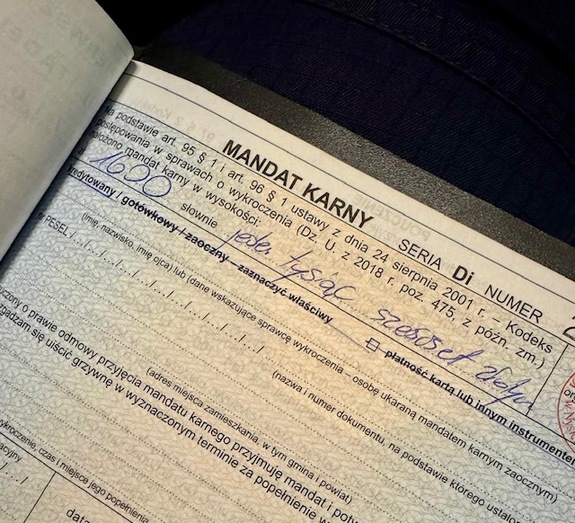 MANDAT KARNY SERIA Di NUMER 2
podstawie art. 95 § 1 i art. 96 § 1 ustawy z dnia 24 sierpnia 2001 r. – Kodeks
postępowania w sprawach o wykroczenia (Dz. U. z 2018 r. poz. 475, z późn. zm.)
nałożono mandat karny w wysokości:
1600 słownie jeden tysiąc sześćset złotych
kredytowany / gotówkowy / zaoczny – zaznaczyć właściwy płatność kartą lub innym instrumentem
(imię, nazwisko, imię ojca) lub (dane wskazujące sprawcę wykroczenia – osobę ukaraną mandatem karnym zaocznym)
nr PESEL
(nazwa i numer dokumentu, na podstawie którego ustalo
(adres miejsca zamieszkania, w tym gmina i powiat)
uczony o prawie odmowy przyjęcia mandatu karnego przyjmuję mandat i potw
zgadzam się uiścić grzywnę w wyznaczonym terminie za popełnienie w
wykroczenie, czas i miejsce jego popełnienia
acyjny
data